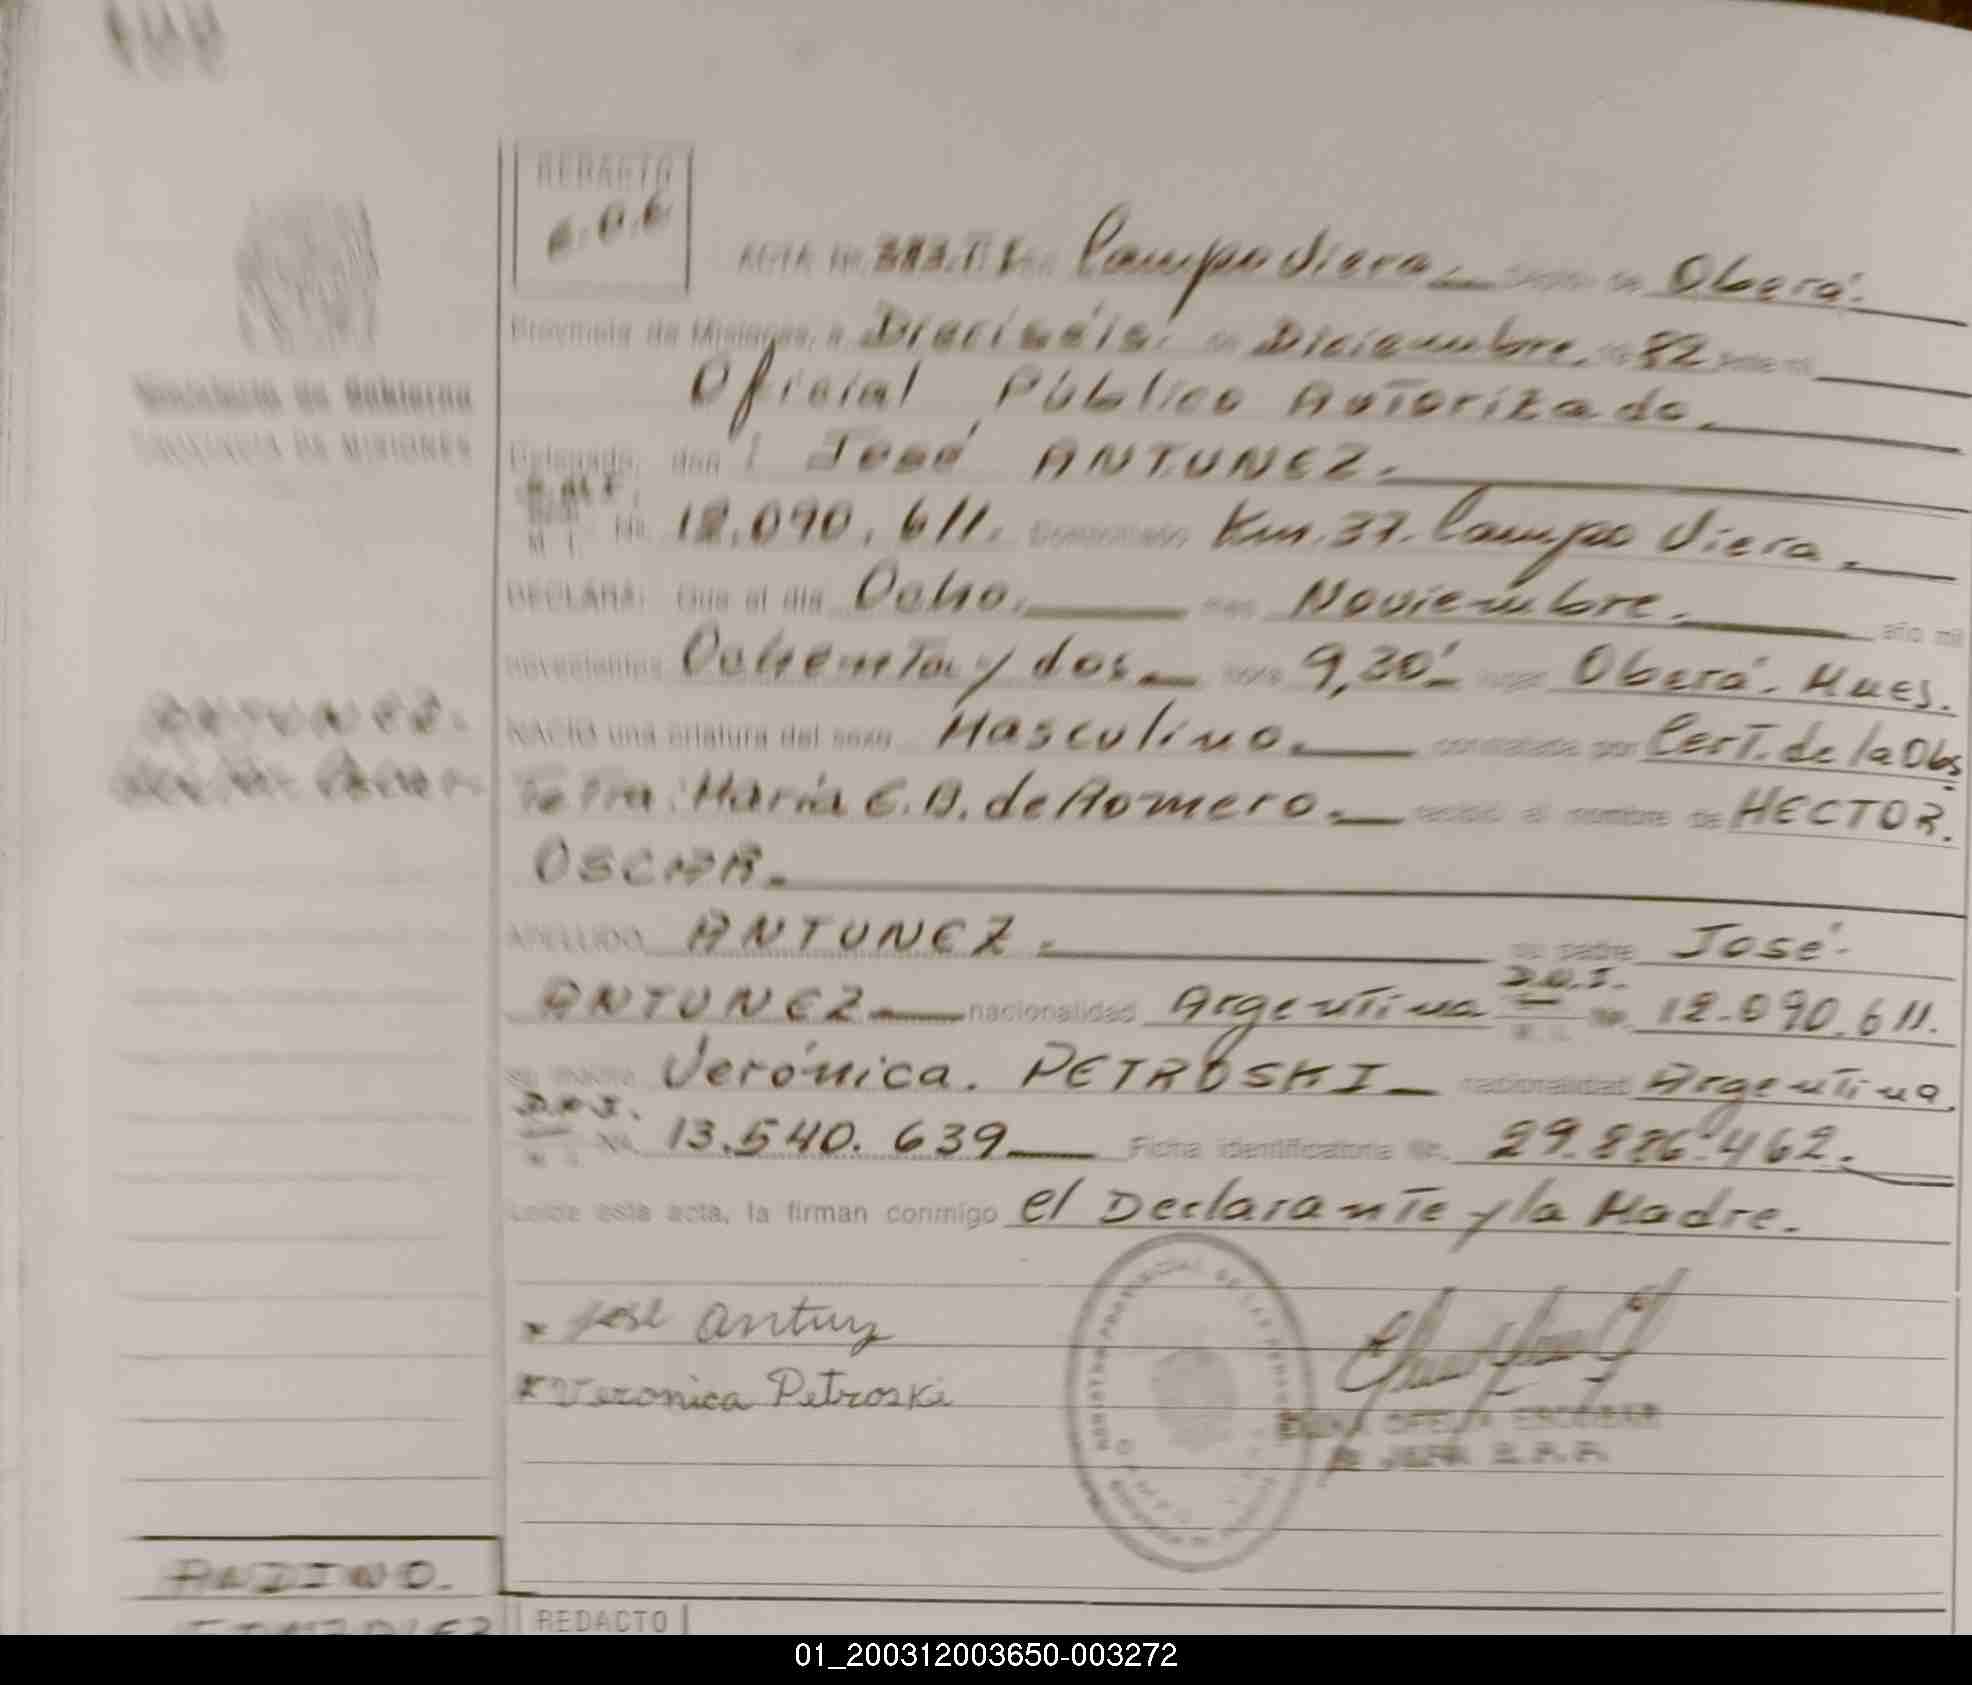 144
REDACTO
ACTA Nº 383. T. I. Campo Viera. Obera.
Provincia de Misiones, a Dieciséis de Diciembre. de 82 ante mi
Oficial Público Autorizado.
Ministerio de Gobierno
PROVINCIA DE MISIONES
Delegado, don José ANTUNEZ.
M. I. Nº 12.090.611. Domiciliado Km. 37. Campo Viera.
DECLARA: Que el día Ocho. mes Noviembre. año mil
novecientos Ochenta y dos hora 9,30' lugar Oberá. Mnes.
ANTUNEZ.
NACIO una criatura del sexo Masculino. constatada por Cert. de la Obs
tetra: María E. B. de Romero. recibió el nombre de HECTOR.
OSCAR.
APELLIDO ANTUNEZ. su padre José
D.N.I.
ANTUNEZ nacionalidad Argentina M. I. Nº 12.090.611.
su madre Verónica. PETROSKI nacionalidad Argentina.
D.N.I.
M. I. Nº 13.540.639 Ficha identificatoria Nº 29.886.462.
Leída esta acta, la firman conmigo el Declarante y la Madre.
José Antunz
Veronica Petroski
OFELIA ESCOBAR
ANDINO.
REDACTO
01_200312003650-003272